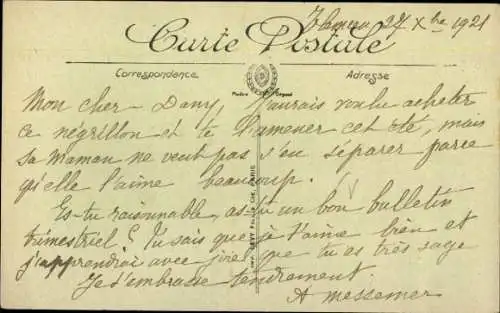 27 Xbre 1921
Carte Postale
Correspondance
Adresse
Mon cher Dany, J'aurais voulu acheter
ce négrillon et te l'amener cet été, mais
sa maman ne veut pas s'en séparer parce
qu'elle l'aime beaucoup.
Es-tu raisonnable, as-tu un bon bulletin
trimestriel? Tu sais que je t'aime bien et
j'apprendrai avec joie que tu es très sage
Je t'embrasse tendrement.
A Messemer